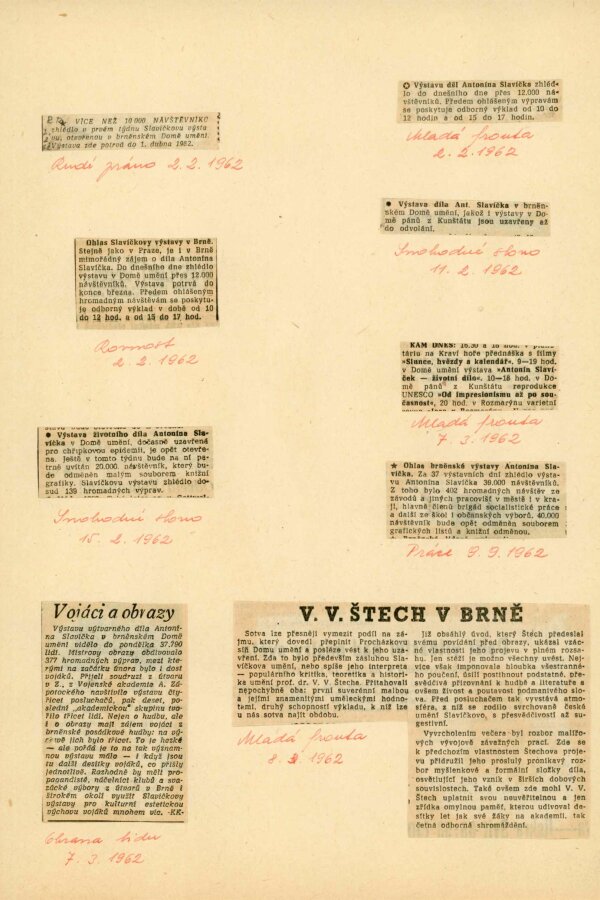 VÍCE NEŽ 10 000 NÁVŠTĚVNÍKŮ
zhlédlo v prvém týdnu Slavíčkovu výsta-
vu, otevřenou v brněnském Domě umění.
Výstava zde potrvá do 1. dubna 1962.
Rudé právo 2. 2. 1962
Výstavu děl Antonína Slavíčka zhléd-
lo do dnešního dne přes 12.000 ná-
vštěvníků. Předem ohlášeným výpravám
se poskytuje odborný výklad od 10 do
12 hodin a od 15 do 17 hodin.
Mladá fronta
2. 2. 1962
● Výstava díla Ant. Slavíčka v brněn-
ském Domě umění, jakož i výstavy v Do-
mě pánů z Kunštátu jsou uzavřeny až
do odvolání.
Svobodné slovo
11. 2. 1962
Ohlas Slavíčkovy výstavy v Brně.
Stejně jako v Praze, je i v Brně
mimořádný zájem o díla Antonína
Slavíčka. Do dnešního dne zhlédlo
výstavu v Domě umění přes 12.000
návštěvníků. Výstava potrvá do
konce března. Předem ohlášeným
hromadným návštěvám se poskytu-
je odborný výklad v době od 10
do 12 hod. a od 15 do 17 hod.
Rovnost
2. 2. 1962
KAM DNES: 16.30 a 18 hod. v
táriu na Kraví hoře přednáška s filmy
»Slunce, hvězdy a kalendář«. 9—19 hod.
v Domě umění výstava »Antonín Slaví-
ček — životní dílo«. 10—18 hod. v Do-
mě pánů z Kunštátu reprodukce
UNESCO »Od impresionismu až po sou-
časnost«, 20 hod. v Rozmarýnu varietní
Mladá fronta
7. 3. 1962
● Výstava životního díla Antonína Sla-
víčka v Domě umění, dočasně uzavřená
pro chřipkovou epidemii, je opět otevře-
na. Ještě v tomto týdnu bude na ní pa-
trně uvítán 20.000. návštěvník, který bu-
de odměněn malým souborem knižní
grafiky. Slavíčkovu výstavu zhlédlo do-
sud 139 hromadných výprav.
Svobodné slovo
15. 2. 1962
★ Ohlas brněnské výstavy Antonína Sla-
víčka. Za 37 výstavních dní zhlédlo výsta-
vu Antonína Slavíčka 39.000 návštěvníků.
Z toho bylo 402 hromadných návštěv ze
závodů a jiných pracovišť v městě i v kra-
ji, hlavně členů brigád socialistické práce
a další ze škol i občanských výborů. 40.000
návštěvník bude opět odměněn souborem
grafických listů a knižní odměnou.
Práce 9. 3. 1962
Vojáci a obrazy
Výstavu výtvarného díla Antoní-
na Slavíčka v brněnském Domě
umění vidělo do pondělka 37.790
lidí. Mistrovy obrazy obdivovalo
377 hromadných výprav, mezi kte-
rými na začátku února bylo i dost
vojáků. Přijeli soudruzi z útvaru
v Z., z Vojenské akademie A. Zá-
potockého navštívilo výstavu čty-
řicet posluchačů, pak deset, po-
slední „akademickou" skupinu tvo-
řilo třicet lidí. Nejen o hudbu, ale
i o obrazy mají zájem vojáci z
brněnské posádkové hudby: na vý-
stavě jich bylo třicet. To je hezké
— ale pořád je to na tak význam-
nou výstavu málo — i když jsou
tu další desítky vojáků, co přišly
jednotlivě. Rozhodně by měli pro-
pagandisté, náčelníci klubů a sva-
zácké výbory z útvarů v Brně i
širokém okolí využít Slavíčkovy
výstavy pro kulturní estetickou
výchovu vojáků mnohem víc. -KK-
Obrana lidu
7. 3. 1962
V. V. ŠTECH V BRNĚ
Sotva lze přesněji vymezit podíl na zá-
jmu, který dovedl přeplnit Procházkovu
síň Domu umění a posléze vést k jeho uza-
vření. Zda to bylo především zásluhou Sla-
víčkova umění, nebo spíše jeho interpreta
— populárního kritika, teoretika a histori-
ka umění prof. dr. V. V. Štecha. Přitahovali
nepochybně oba: první suverénní malbou
a jejími znamenitými uměleckými hodno-
temi, druhý schopností výkladu, k níž lze
u nás sotva najít obdobu.
Již obsáhlý úvod, který Štech předeslal
svému povídání před obrazy, ukázal vzác-
né vlastnosti jeho projevu v plném rozsa-
hu. Jen stěží je možno všechny uvést. Nej-
více však imponovala hloubka všestranné-
ho poučení, úsilí postihnout podstatné, pře-
svědčivé přirovnání k hudbě a literatuře a
ovšem životní a poutavost podmanivého slo-
va. Před posluchačem tak vyvstává atmo-
sféra, z níž se rodilo svrchovaně české
umění Slavíčkovo, s přesvědčivostí až su-
gestivní.
Vyvrcholením večera byl rozbor malířo-
vých vývojově závažných prací. Zde se
k předchozím vlastnostem Štechova proje-
vu přidružil jeho proslulý pronikavý roz-
bor myšlenkové a formální složky díla,
osvětlující jeho vznik v širších dobových
souvislostech. Také ovšem zde mohl V. V.
Štech uplatnit svou neuvěřitelnou a jen
zřídka omylnou paměť, kterou udivoval de-
sítky let jak své žáky na akademii, tak
četná odborná shromáždění.
Mladá fronta
8. 3. 1962